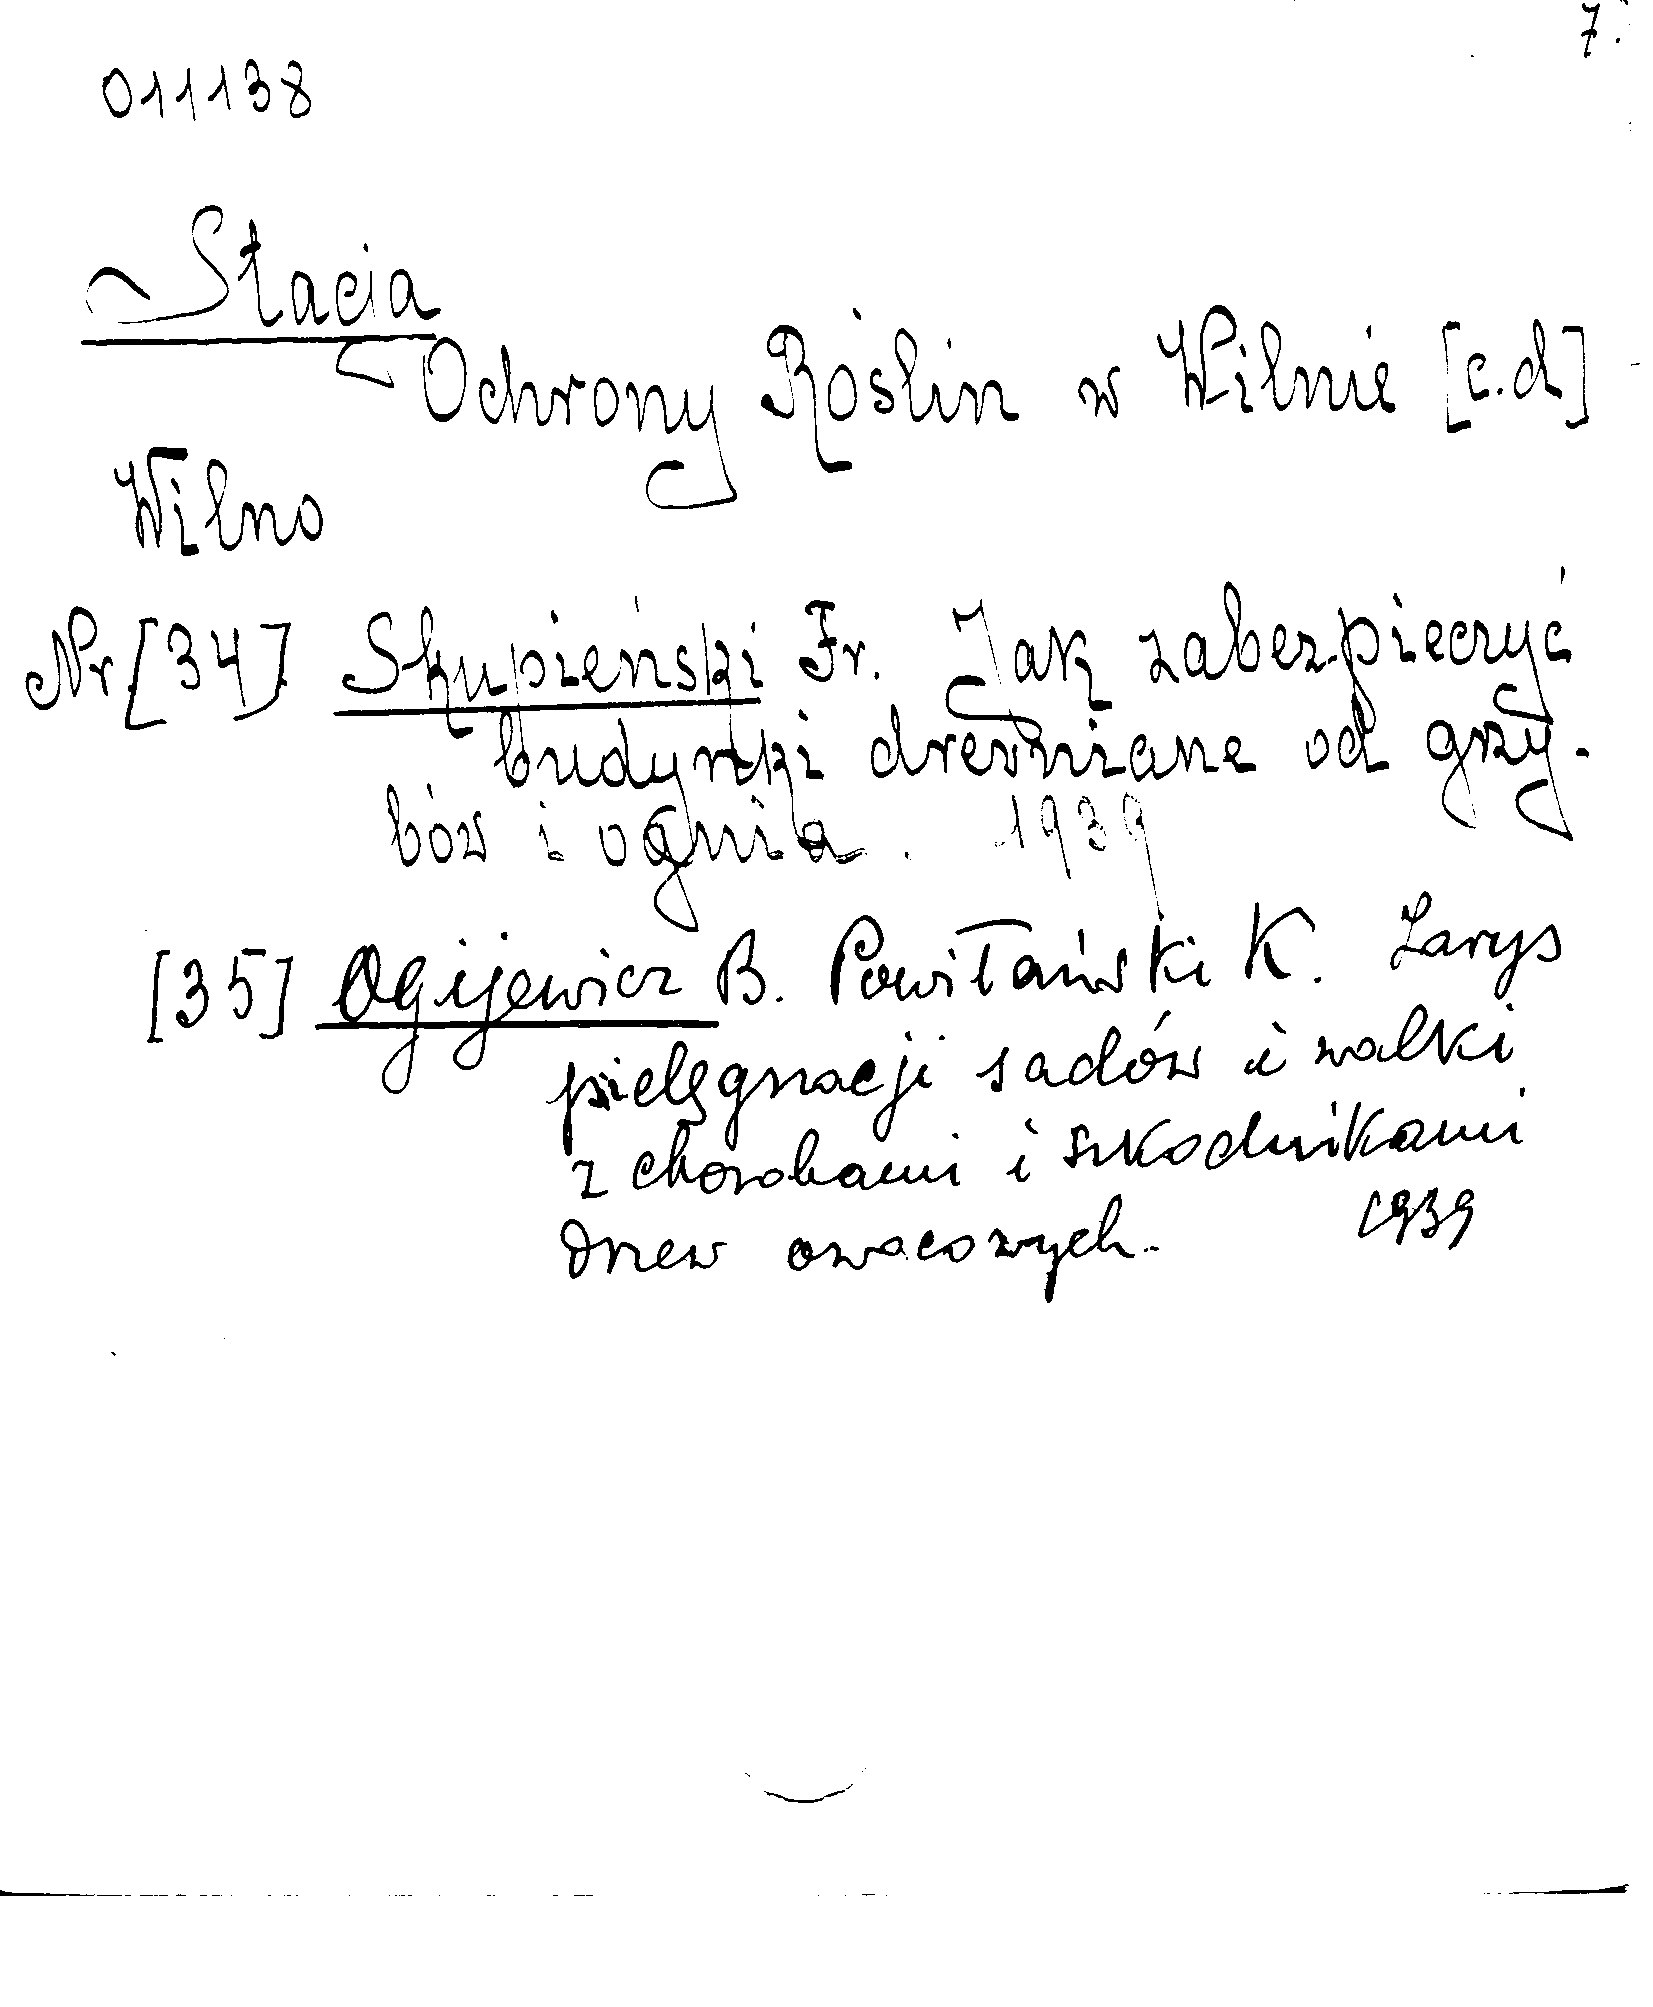 7.
011138
Stacja
Ochrony Roślin w Wilnie [c.d]
Wilno
Nr [34] Skupieński Fr. Jak zabezpieczyć
budynki drewniane od grzy-
bów i ognia. 1939
[35] Ogijewicz B. Powiłański K. Zarys
pielęgnacji sadów i walki
z chorobami i szkodnikami
drzew owocowych. 1939